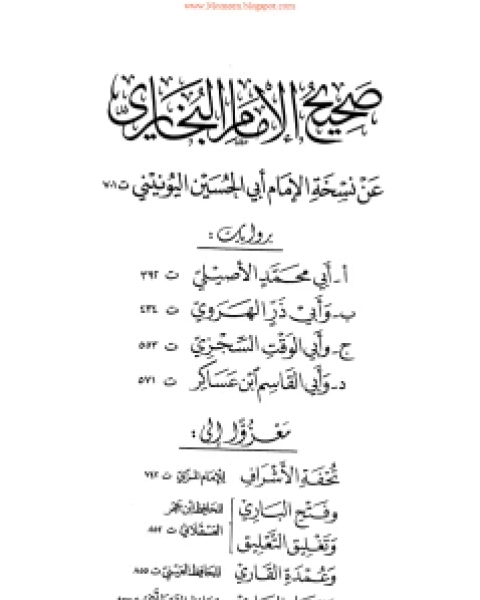 صَحِيحُ الإِمَامِ البُخَارِيِّ
عَنْ نُسْخَةِ الإِمَامِ أَبِي الحُسَيْنِ اليُونِينِي ت ٧٠١
بروايات :
أ - أَبِي مُحَمَّدٍ الأَصِيلِيّ ت ٣٩٢
ب - وَأَبِي ذَرٍّ الهَرَوِيّ ت ٤٣٤
ج - وَأَبِي الوَقْتِ السِّجْزِيّ ت ٥٥٣
د - وَأَبِي القَاسِمِ ابْنِ عَسَاكِر ت ٥٧١
مَعْزُوًّا إِلَى :
تُحْفَةِ الأَشْرَافِ للإمام المزي ت ٧٤٢
وَفَتْحِ البَارِي للحافظ ابن حجر
وَتَغْلِيقِ التَّعْلِيقِ العسقلاني ت ٨٥٢
وَعُمْدَةِ القَارِي للحافظ العيني ت ٨٥٥